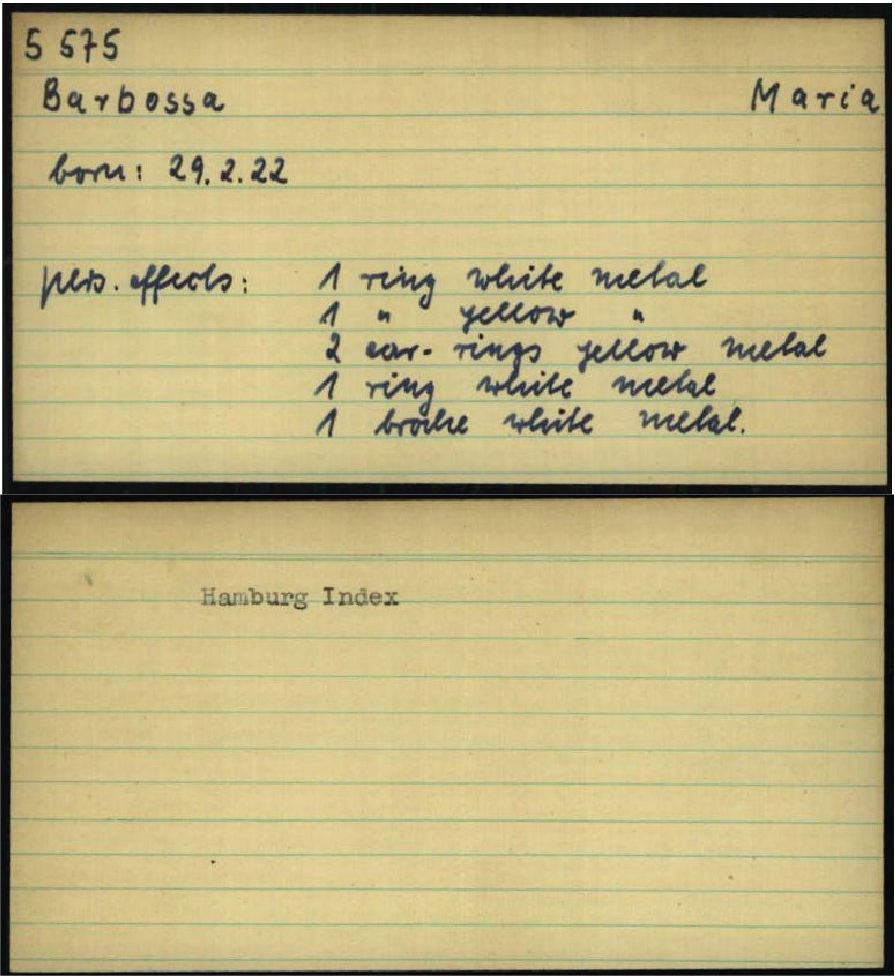 5 575
Barbossa Maria
born: 29.2.22
pers. effects: 1 ring white metal
1 " yellow "
2 ear-rings yellow metal
1 ring white metal
1 broche white metal.
Hamburg Index